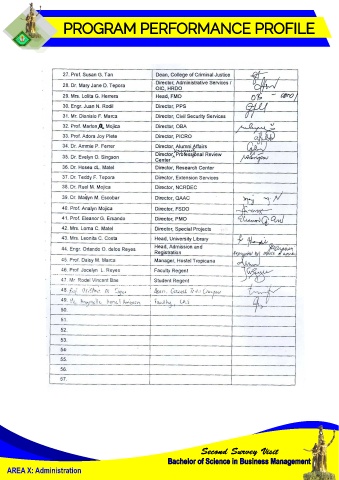 PROGRAM PERFORMANCE PROFILE
27. Prof. Susan G. Tan Dean, College of Criminal Justice
28. Dr. Mary Jane D. Tepora Director, Administrative Services / OIC, HRDO
29. Mrs. Lolita G. Herrera Head, FMO
30. Engr. Juan N. Rodil Director, PPS
31. Mr. Dionielo F. Marca Director, Civil Security Services
32. Prof. Marlon A. Mojica Director, OBA
33. Prof. Adora Joy Plete Director, PICRO
34. Dr. Ammie P. Ferrer Director, Alumni Affairs
35. Dr. Evelyn D. Singson Director, Professional Review Center
36. Dr. Hosea dL. Matel Director, Research Center
37. Dr. Teddy F. Tepora Director, Extension Services
38. Dr. Ruel M. Mojica Director, NCRDEC
39. Dr. Mailyn M. Escobar Director, QAAC
40. Prof. Analyn Mojica Director, FSDO
41. Prof. Eleanor G. Ersando Director, PMO
42. Mrs. Lorna C. Matel Director, Special Projects
43. Mrs. Leonita C. Costa Head, University Library
44. Engr. Orlando O. delos Reyes Head, Admission and Registration
45. Prof. Daisy M. Marco Manager, Hostel Tropicana
46. Prof. Jocelyn L. Reyes Faculty Regent
47. Mr. Rodel Vincent Bae Student Regent
48.
49.
50.
51.
52.
53.
54.
55.
56.
57.
Second Survey Visit
Bachelor of Science in Business Management
AREA X: Administration